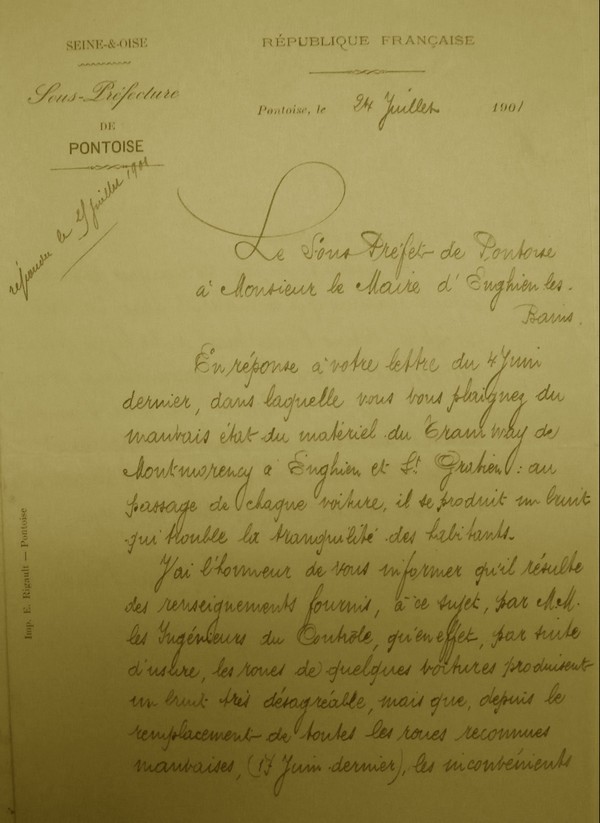 SEINE-&-OISE
Sous-Préfecture
DE
PONTOISE
répondu le 27 juillet 1901
RÉPUBLIQUE FRANÇAISE
Pontoise, le 24 Juillet 1901
Le Sous Préfet de Pontoise
à Monsieur le Maire d'Enghien les-
Bains.
En réponse à votre lettre du 4 Juin
dernier, dans laquelle vous vous plaignez du
mauvais état du matériel du Tramway de
Montmorency à Enghien et St. Gratien : au
passage de chaque voiture, il se produit un bruit
qui trouble la tranquilité des habitants.
J'ai l'honneur de vous informer qu'il résulte
des renseignements fournis, à ce sujet, par M.M.
les Ingénieurs du Contrôle, qu'en effet, par suite
d'usure, les roues de quelques voitures produisent
un bruit très désagréable, mais que, depuis le
remplacement de toutes les roues reconnues
mauvaises, (17 Juin dernier), les inconvénients
Imp. E. Rigault — Pontoise